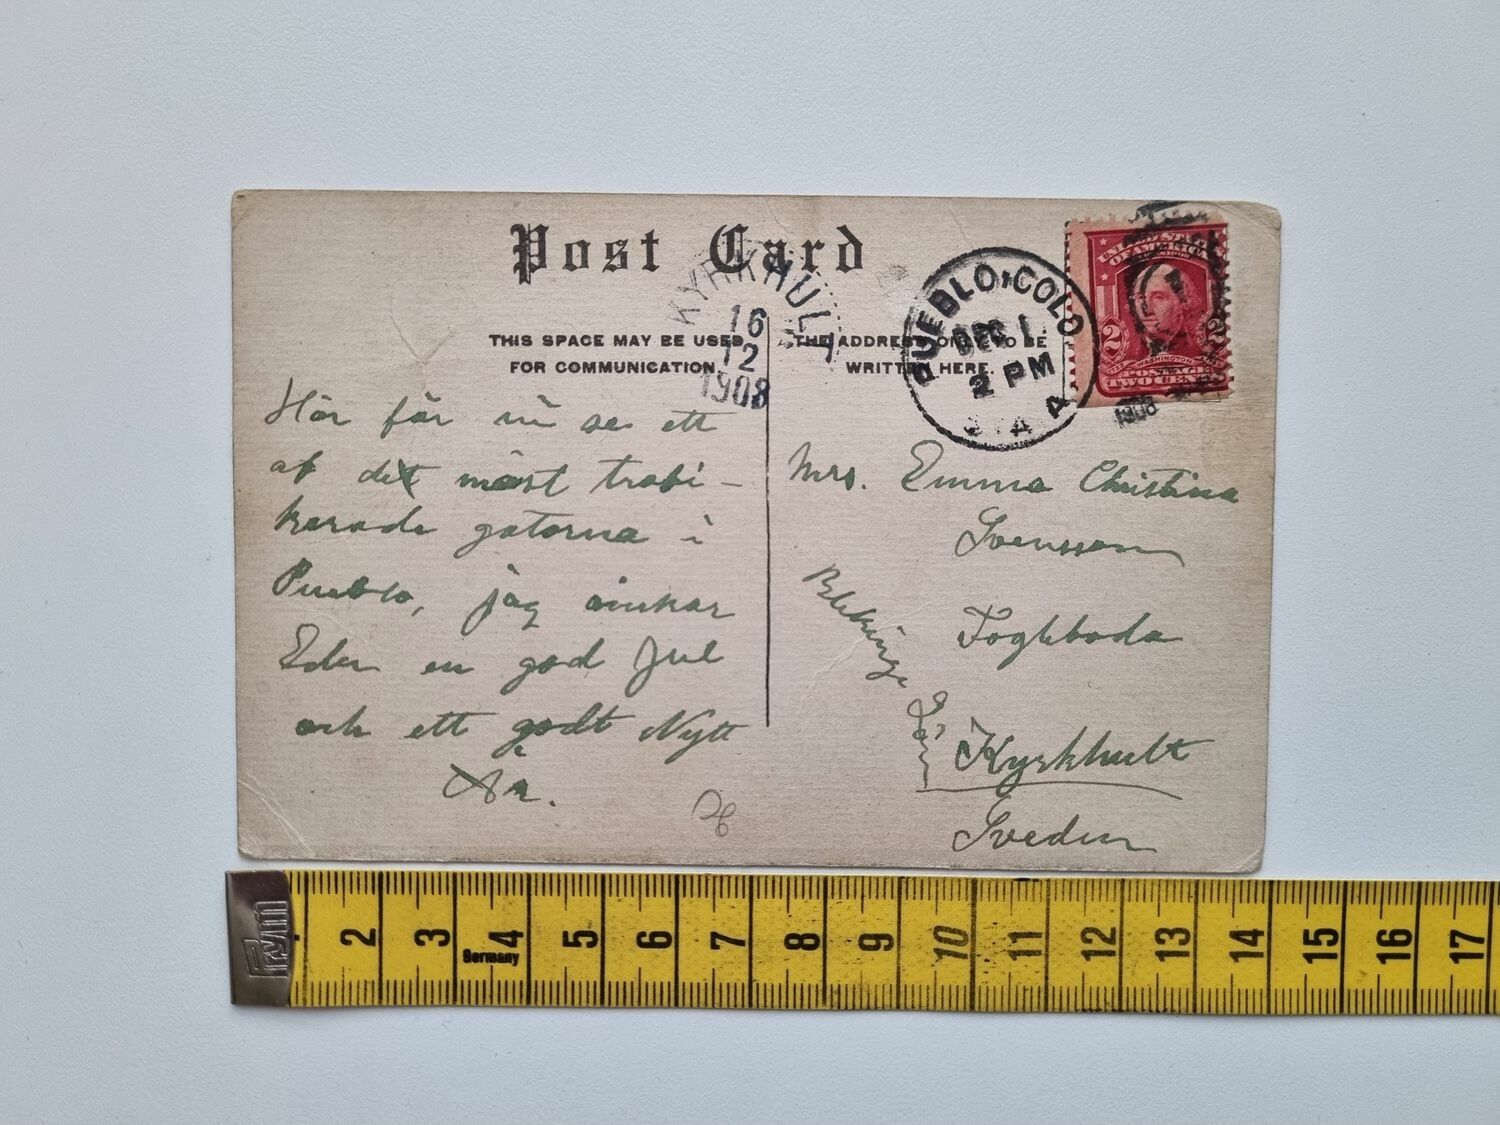 Post Card
KYRKHULT
16
12
1908
THIS SPACE MAY BE USED
FOR COMMUNICATION.
THE ADDRESS ONLY TO BE
WRITTEN HERE.
PUEBLO, COLO
DEC 1
2 PM
1908
UNITED STATES
OF AMERICA
2 2
WASHINGTON
POSTAGE
TWO CENTS
Här får ni se ett
af det mäst trafi-
kerade gatorna i
Pueblo, jag önskar
Eder en god Jul
och ett godt Nytt
År.
Mrs. Emma Christina
Svensson
Blekinge Län
Kyrkhult
Sveden
Prym
Germany
2 3 4 5 6 7 8 9 10 11 12 13 14 15 16 17